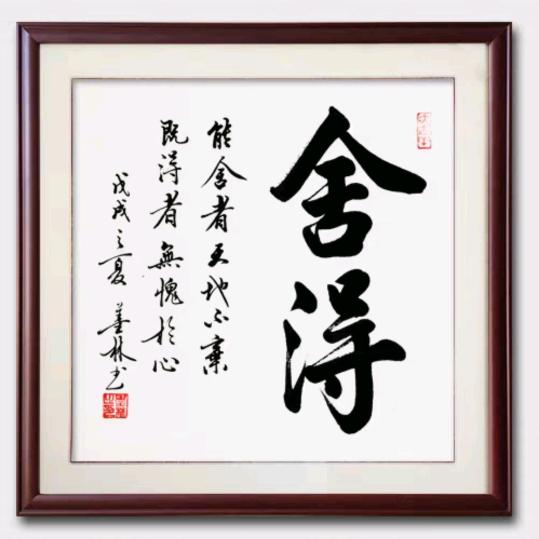 舍得
能舍者天地不棄
既得者無愧於心
戊戌之夏 墨林书